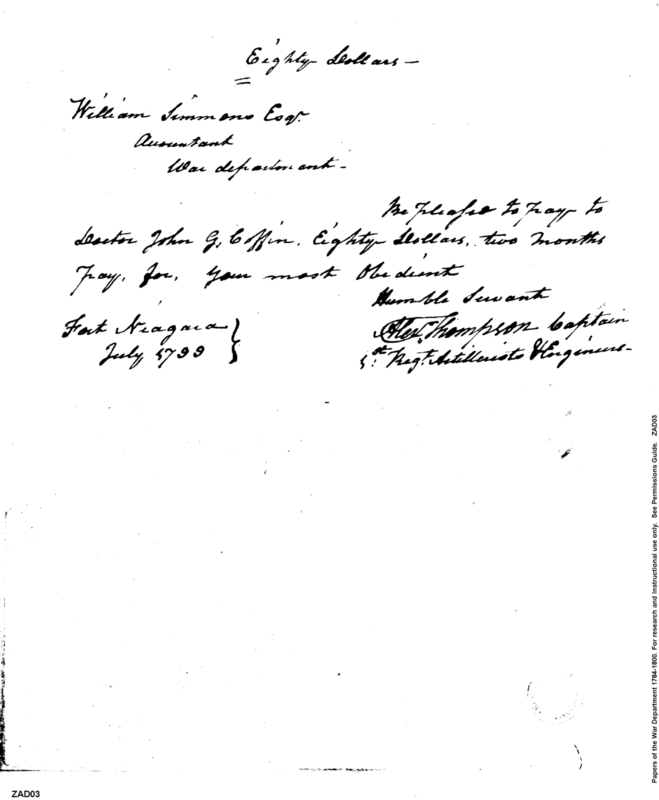 Eighty Dollars —
William Simmons Esqr.
Accountant
War department -
Be pleased to pay to
Doctor John G, Coffin, Eighty Dollars, two months
Pay, for, your most Obedient
Humble Servant
Fort Niagara
July 1799
Alex. Thompson Captain
1st. Regt. Artillerists & Engineers -
Papers of the War Department 1784-1800. For research and instructional use only. See Permissions Guide. ZAD03
ZAD03